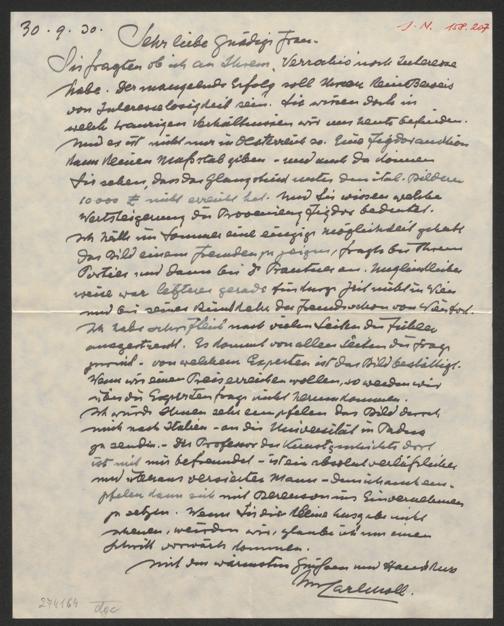 30.9.30.
J.N. 158.207
Sehr liebe Gnädige Frau.
Sie fragten ob ich an Ihrem, Verrochio noch Interesse
habe. Der mangelnde Erfolg soll Ihnen kein Beweis
von Interesselosigkeit sein. Sie wissen doch in
welch traurigen Verhältnissen wir uns heute befinden.
Und es ist nicht nur in Oesterreich so. Eine Figdorauktion
kann keinen Maßstab geben - und auch da konnen
Sie sehen, dass das Glanzstück unter den ital. Bildern
10000 £ nicht erreicht hat. Und Sie wissen welche
Wertsteigerung die Provenienz Figdor bedeutet.
Ich hätte im Sommer eine einzige Möglichkeit gehabt
das Bild einem Fremden zu zeigen, fragte bei Ihrem
Portier und dann bei Dr an. Unglücklicher
weise war letzterer gerade für kurze Zeit nicht in Wien
und bei seiner Rückkehr der Fremde schon von Wien fort.
Ich habe schriftlich nach vielen Seiten die Fühler
ausgestreckt. Es kommt von allen Seiten die Frage
zurück - von welchem Experten ist das Bild bestätigt.
Wenn wir einen Preis erreichen wollen, so werden wir
über die Expertenfrage nicht herumkommen.
Ich würde Ihnen sehr empfehlen das Bild durch
mich nach Italien - an die Universität in Padua
zu senden. - Der Professor der Kunstgeschichte dort
ist mit mir befreundet - ist ein absolut verläßlicher
und überaus versierter Mann -
pfehlen dann sich mit Berenson ins Einvernehmen
zu setzen. Wenn Sie die kleine Ausgabe nicht
scheuen, würden wir, glaube ich um einen
Schritt vorwärts kommen.
Mit den wärmsten Grüßen und Handkuss
Ihr Carl Moll.
274164